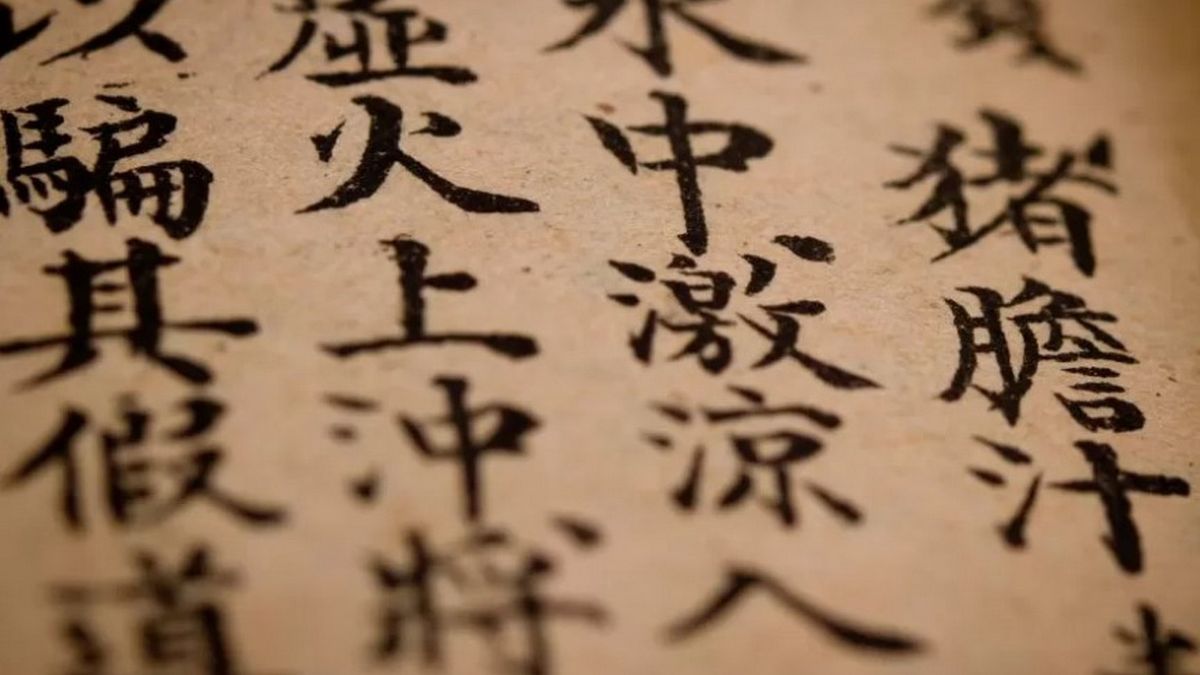 猪膽汁
水中激涼入
虛火上沖將
以騙其假道